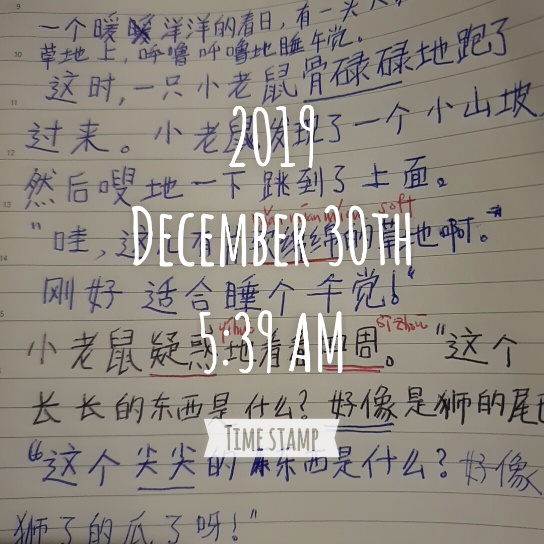 一个暖暖洋洋的春日,有一头大
草地上,呼噜呼噜地睡午觉。
这时,一只小老鼠骨碌碌地跑了
过来。小老鼠发现了一个小山坡,
然后嗖地一下跳到了上面。
soft
"哇,这 有 绵绵的草地啊。
刚好适合睡个午觉!"
yí huò
sì zhōu
小老鼠疑惑地看着四周。"这个
长长的东西是什么?好像是狮的尾巴
"这个尖尖的东西是什么?好像
狮子的爪子呀!"
2019
December 30th
5:39 AM
Time stamp